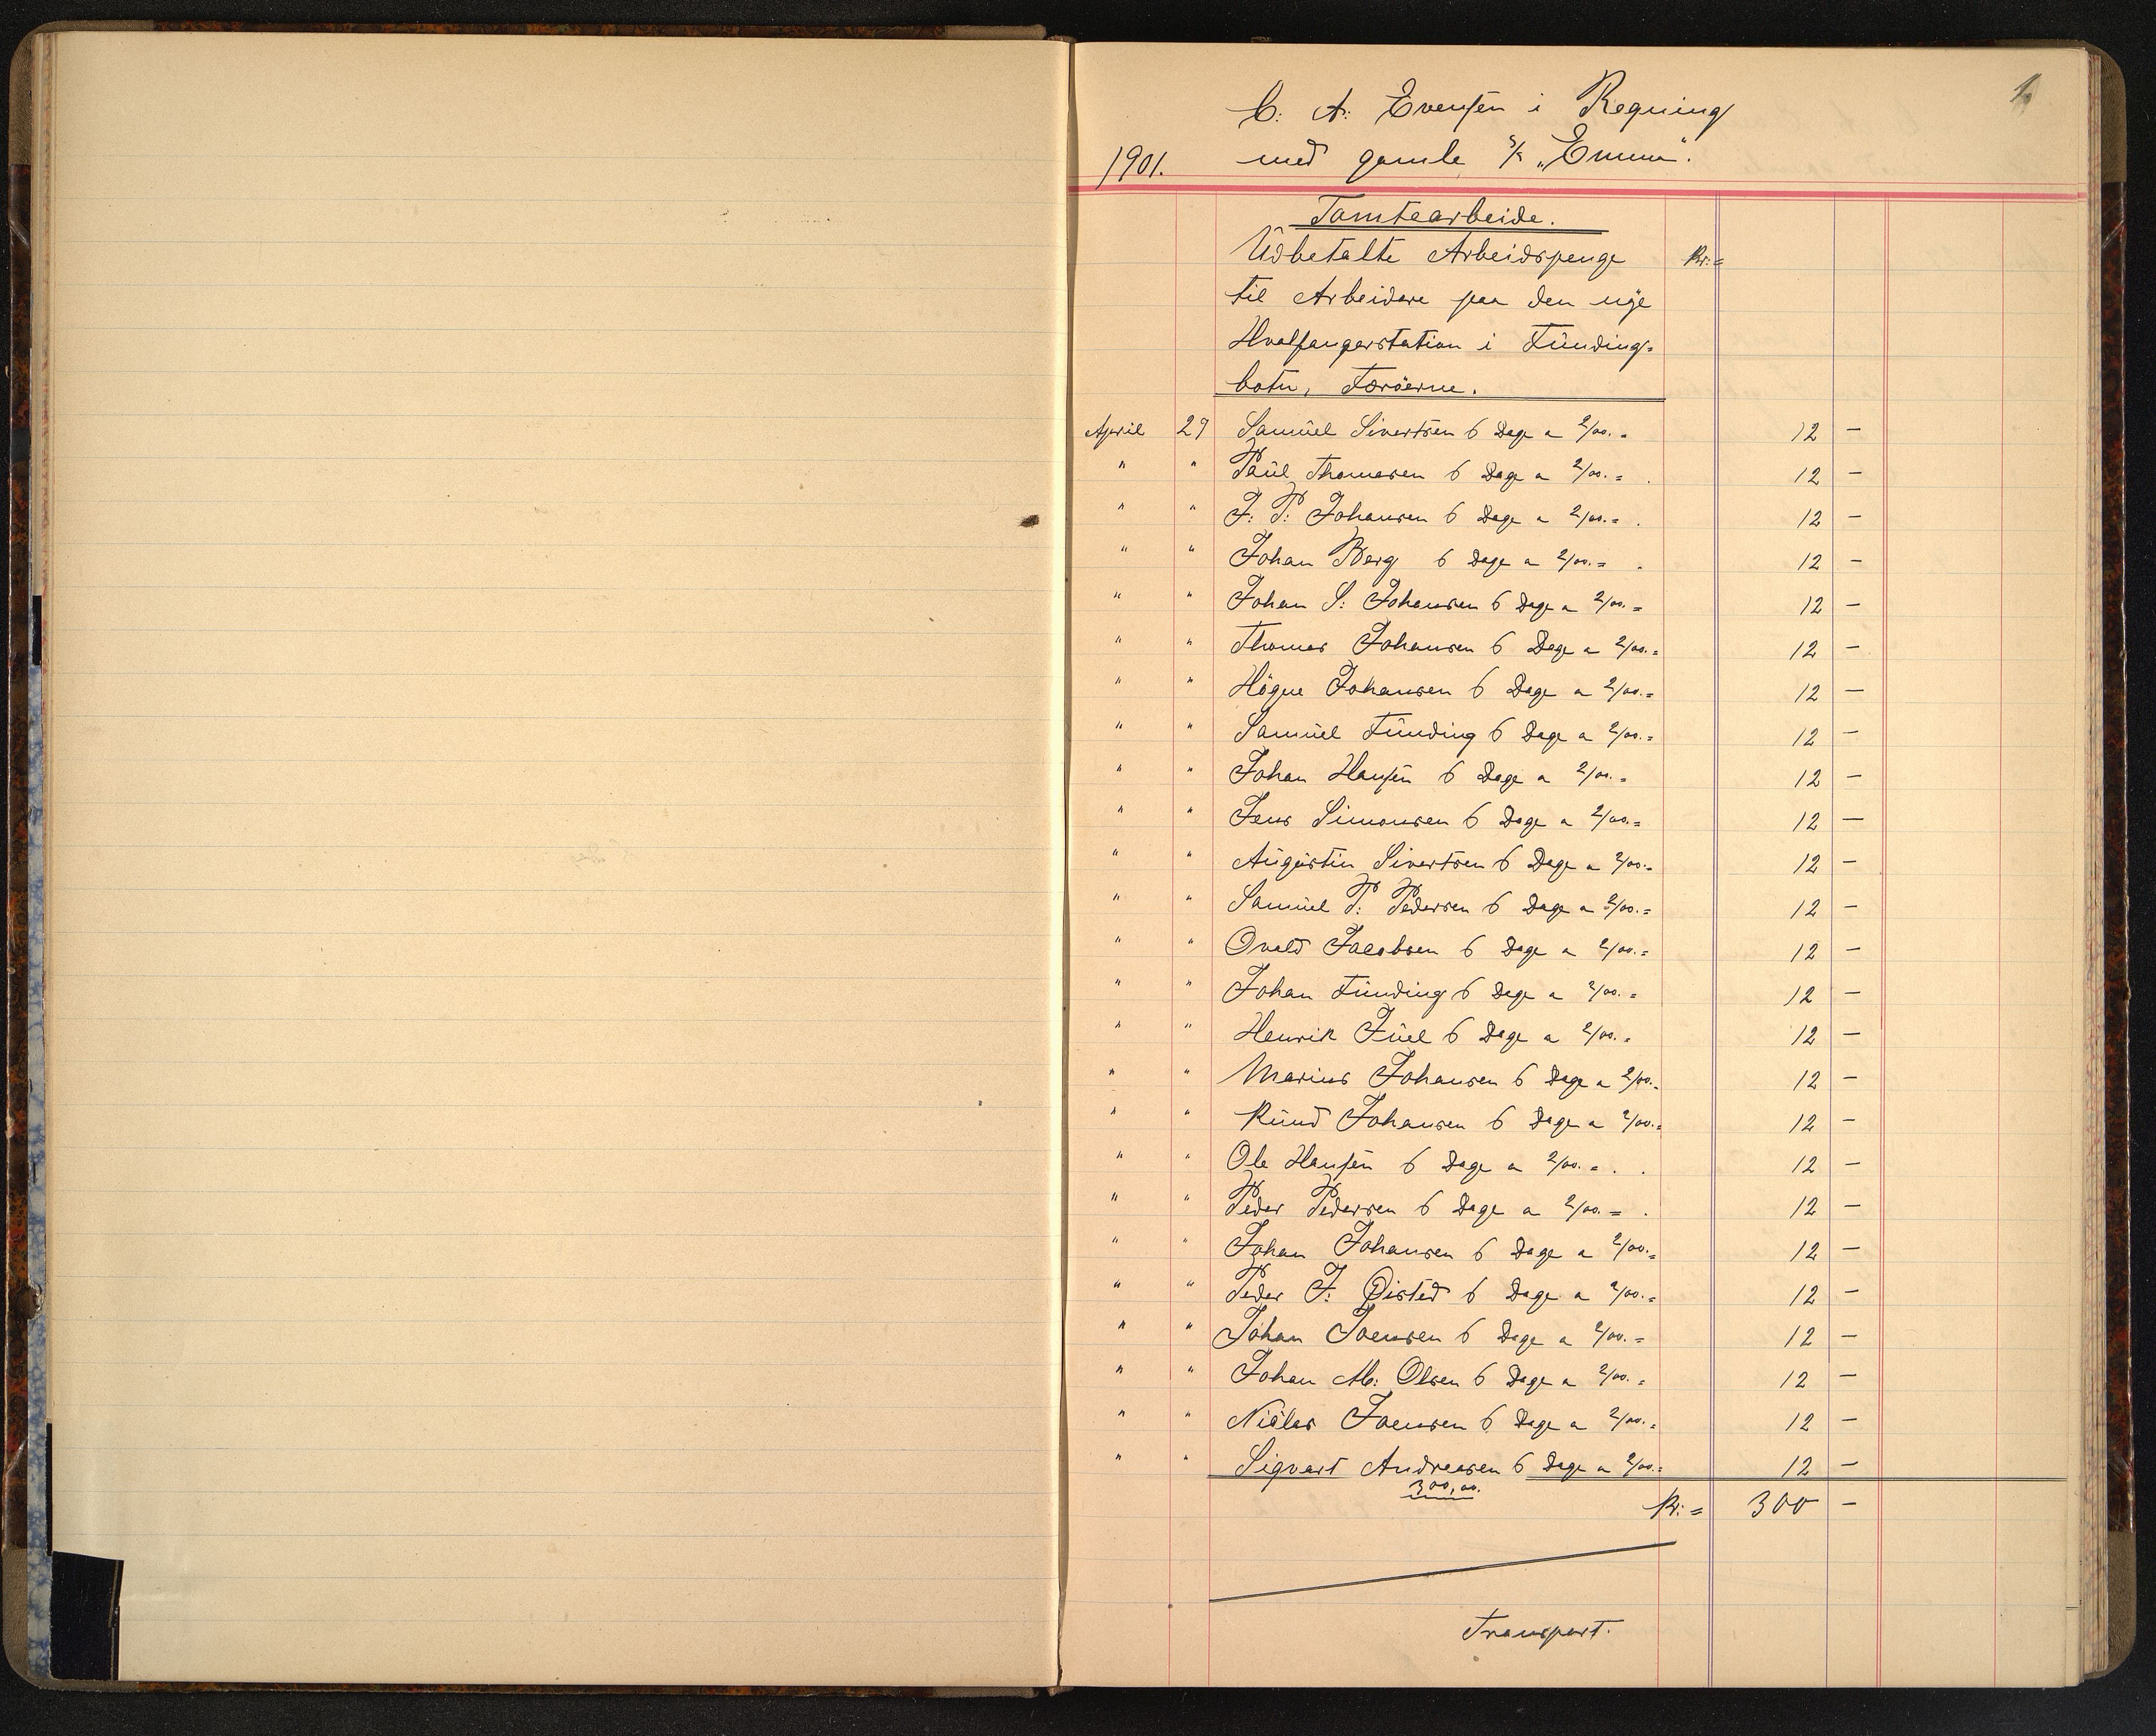 1.
C. A. Evensen i Regning
1901. med gamle S/K „Emma".
Tomtearbeide.
Udbetalte Arbeidspenge Kr:=
til Arbeidere paa den nye
Hvalfangerstation i Funding=
botn, Færöerne.
April 27 Samuel Sivertsen 6 Dage a 2/00.= 12 —
" " Paul Thomasen 6 Dage a 2/00.= . 12 —
" " J. P: Johansen 6 Dage a 2/00.= . 12 —
" " Johan Berg 6 Dage a 2/00.= . 12 —
" " Johan S: Johansen 6 Dage a 2/00.= 12 —
" " Thomas Johansen 6 Dage a 2/00.= 12 —
" " Högne Johansen 6 Dage a 2/00.= 12 —
" " Samuel Funding 6 Dage a 2/00.= 12 —
" " Johan Hansen 6 Dage a 2/00.= 12 —
" " Jens Simonsen 6 Dage a 2/00.= 12 —
" " Augustin Sivertsen 6 Dage a 2/00.= 12 —
" " Samuel P: Pedersen 6 Dage a 2/00.= 12 —
" " Ovald Jacobsen 6 Dage a 2/00.= 12 —
" " Johan Funding 6 Dage a 2/00.= 12 —
" " Henrik Juel 6 Dage a 2/00.= 12 —
" " Marius Johansen 6 Dage a 2/00.= 12 —
" " Kund Johansen 6 Dage a 2/00.= 12 —
" " Ole Hansen 6 Dage a 2/00.= . . 12 —
" " Peder Pedersen 6 Dage a 2/00.= . 12 —
" " Johan Johansen 6 Dage a 2/00.= 12 —
" " Peder J: Øisted 6 Dage a 2/00.= 12 —
" " Johan Joensen 6 Dage a 2/00.= 12 —
" " Johan M: Olsen 6 Dage a 2/00.= 12 —
" " Niålas Joensen 6 Dage a 2/00.= 12 —
" " Sigvart Andreasen 6 Dage a 2/00.= 12 —
300,00.
Kr:= 300 —
Transport.